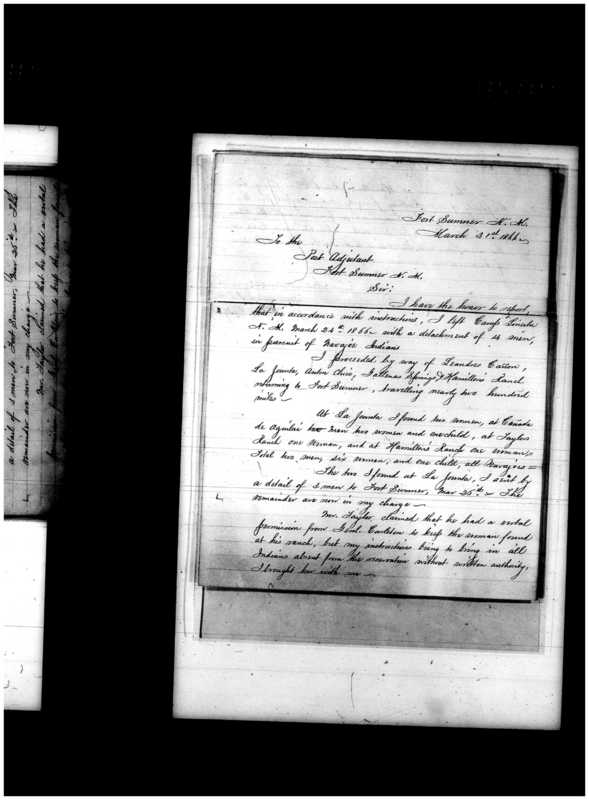 Fort Sumner N. M.
March 31st 1866
To the
Post Adjutant
Fort Sumner N. M.
Sir:
I have the honor to report,
that in accordance with instructions, I left Camp Lincoln
N. M. March 24th 1866 with a detachment of 14 men,
in pursuit of Navajoe Indians
I proceeded by way of
La Junta, Anton Chico, Springs & Hamilton's Ranch
returning to Fort Sumner, travelling nearly two hundred
miles —
At La Junta I found two women, at Cañada
de two men two women and one child, at Taylors
Ranch one woman, and at Hamilton's Ranch one woman,
Total two men, six women, and one child, all Navajoes =
The two I found at La Junta, I sent by
a detail of 3 men to Fort Sumner, Mar 25th — The
remainder are now in my charge —
Mr. Taylor claimed that he had a verbal
permission from Genl. Carleton to keep the woman found
at his ranch, but my instructions being to bring in all
Indians absent from the reservation without written authority,
I brought her with me —
a detail of 3 men to Fort Sumner, Mar 25th — The
remainder are now in my charge —
Mr. Taylor claimed that he had a verbal